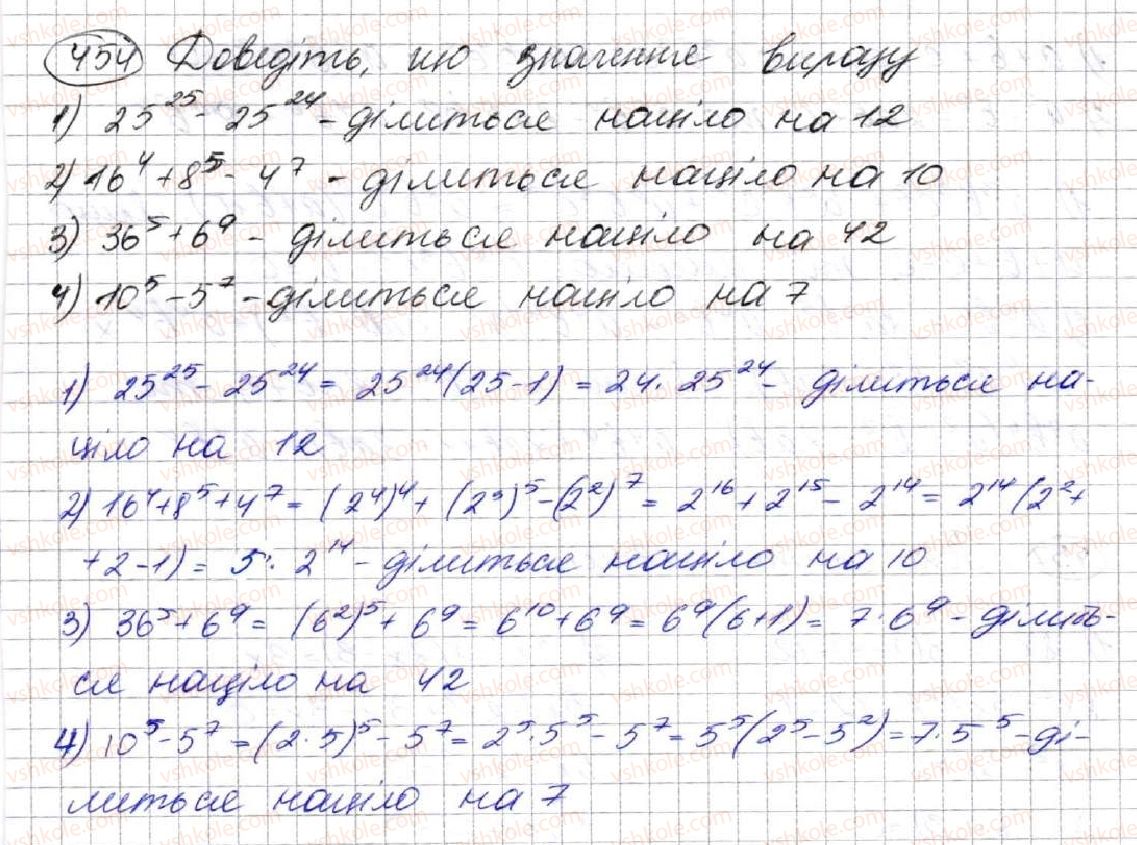 454 Доведіть, що значення виразу
1) 25²⁵ - 25²⁴ - ділиться націло на 12
2) 16⁴ + 8⁵ - 4⁷ - ділиться націло на 10
3) 36⁵ + 6⁹ - ділиться націло на 42
4) 10⁵ - 5⁷ - ділиться націло на 7
1) 25²⁵ - 25²⁴ = 25²⁴(25-1) = 24 · 25²⁴ - ділиться на-
ціло на 12
2) 16⁴ + 8⁵ + 4⁷ = (2⁴)⁴ + (2³)⁵ - (2²)⁷ = 2¹⁶ + 2¹⁵ - 2¹⁴ = 2¹⁴(2² +
+ 2 - 1) = 5 · 2¹⁴ - ділиться націло на 10
3) 36⁵ + 6⁹ = (6²)⁵ + 6⁹ = 6¹⁰ + 6⁹ = 6⁹(6+1) = 7 · 6⁹ - ділить-
ся націло на 42
4) 10⁵ - 5⁷ = (2 · 5)⁵ - 5⁷ = 2⁵ · 5⁵ - 5⁷ = 5⁵(2⁵ - 5²) = 7 · 5⁵ - ді-
литься націло на 7
vshkole.com